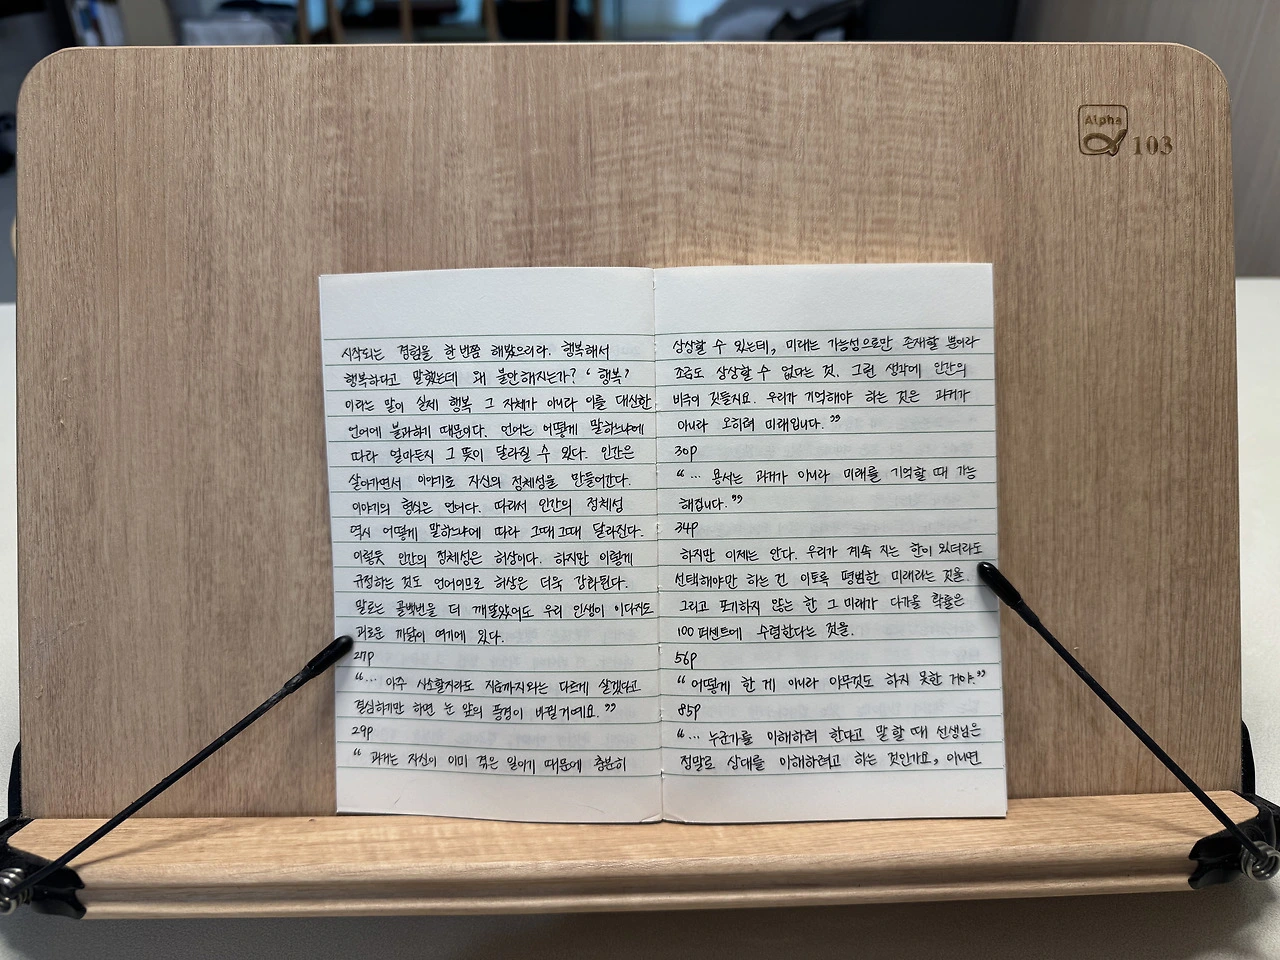 Alpha
103
시작되는 경험을 한번쯤 해봤으리라. 행복해서
행복하다고 말했는데 왜 불안해지는가? ‘행복’
이라는 말이 실제 행복 그 자체가 아니라 이를 대신한
언어에 불과하기 때문이다. 언어는 어떻게 말하느냐에
따라 얼마든지 그 뜻이 달라질 수 있다. 인간은
살아가면서 이야기로 자신의 정체성을 만들어간다.
이야기의 형식은 언어다. 따라서 인간의 정체성
역시 어떻게 말하느냐에 따라 그때그때 달라진다.
이렇듯 인간의 정체성은 허상이다. 하지만 이렇게
규정하는 것도 언어이므로 허상은 더욱 강화된다.
말로는 골백번을 더 깨달았어도 우리 인생이 이다지도
괴로운 까닭이 여기에 있다.
27p
“… 아주 사소할지라도 지금까지와는 다르게 살겠다고
결심하기만 하면 눈 앞의 풍경이 바뀔거예요.”
29p
“ 과거는 자신이 이미 겪은 일이기 때문에 충분히
상상할 수 있는데, 미래는 가능성으로만 존재할 뿐이라
조금도 상상할 수 없다는 것. 그런 생각에 인간의
비극이 깃들지요. 우리가 기억해야 하는 것은 과거가
아니라 오히려 미래입니다.”
30p
“… 용서는 과거가 아니라 미래를 기억할 때 가능
해집니다.”
34p
하지만 이제는 안다. 우리가 계속 지는 한이 있더라도
선택해야만 하는 건 이토록 평범한 미래라는 것을.
그리고 포기하지 않는 한 그 미래가 다가올 확률은
100퍼센트에 수렴한다는 것을.
56p
“어떻게 한 게 아니라 아무것도 하지 못한 거야.”
85p
“… 누군가를 이해하려 한다고 말할 때 선생님은
정말로 상대를 이해하려고 하는 것인가요, 아니면